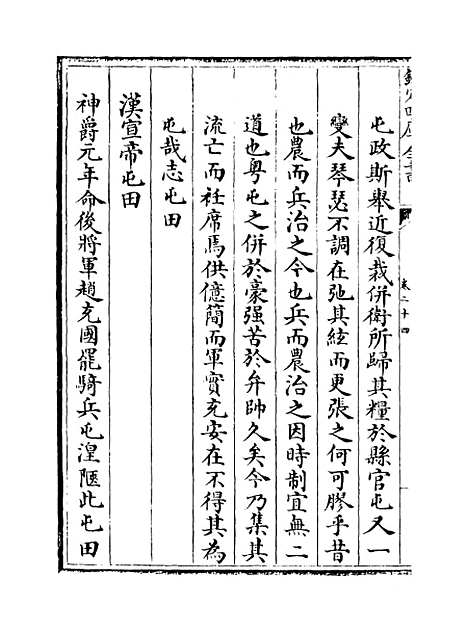 欽定四庫全書
卷二十四
屯政斯舉近復裁併衛所歸其糧於縣官屯又一
變夫琴瑟不調在弛其絃而更張之何可膠乎昔
也農而兵治之今也兵而農治之因時制宜無二
道也粤屯之併於豪强苦於弁帥久矣今乃集其
流亡而袵席焉供億簡而軍實充安在不得其為
屯哉志屯田
漢宣帝屯田
神爵元年命後將軍趙充國罷騎兵屯湟陿此屯田